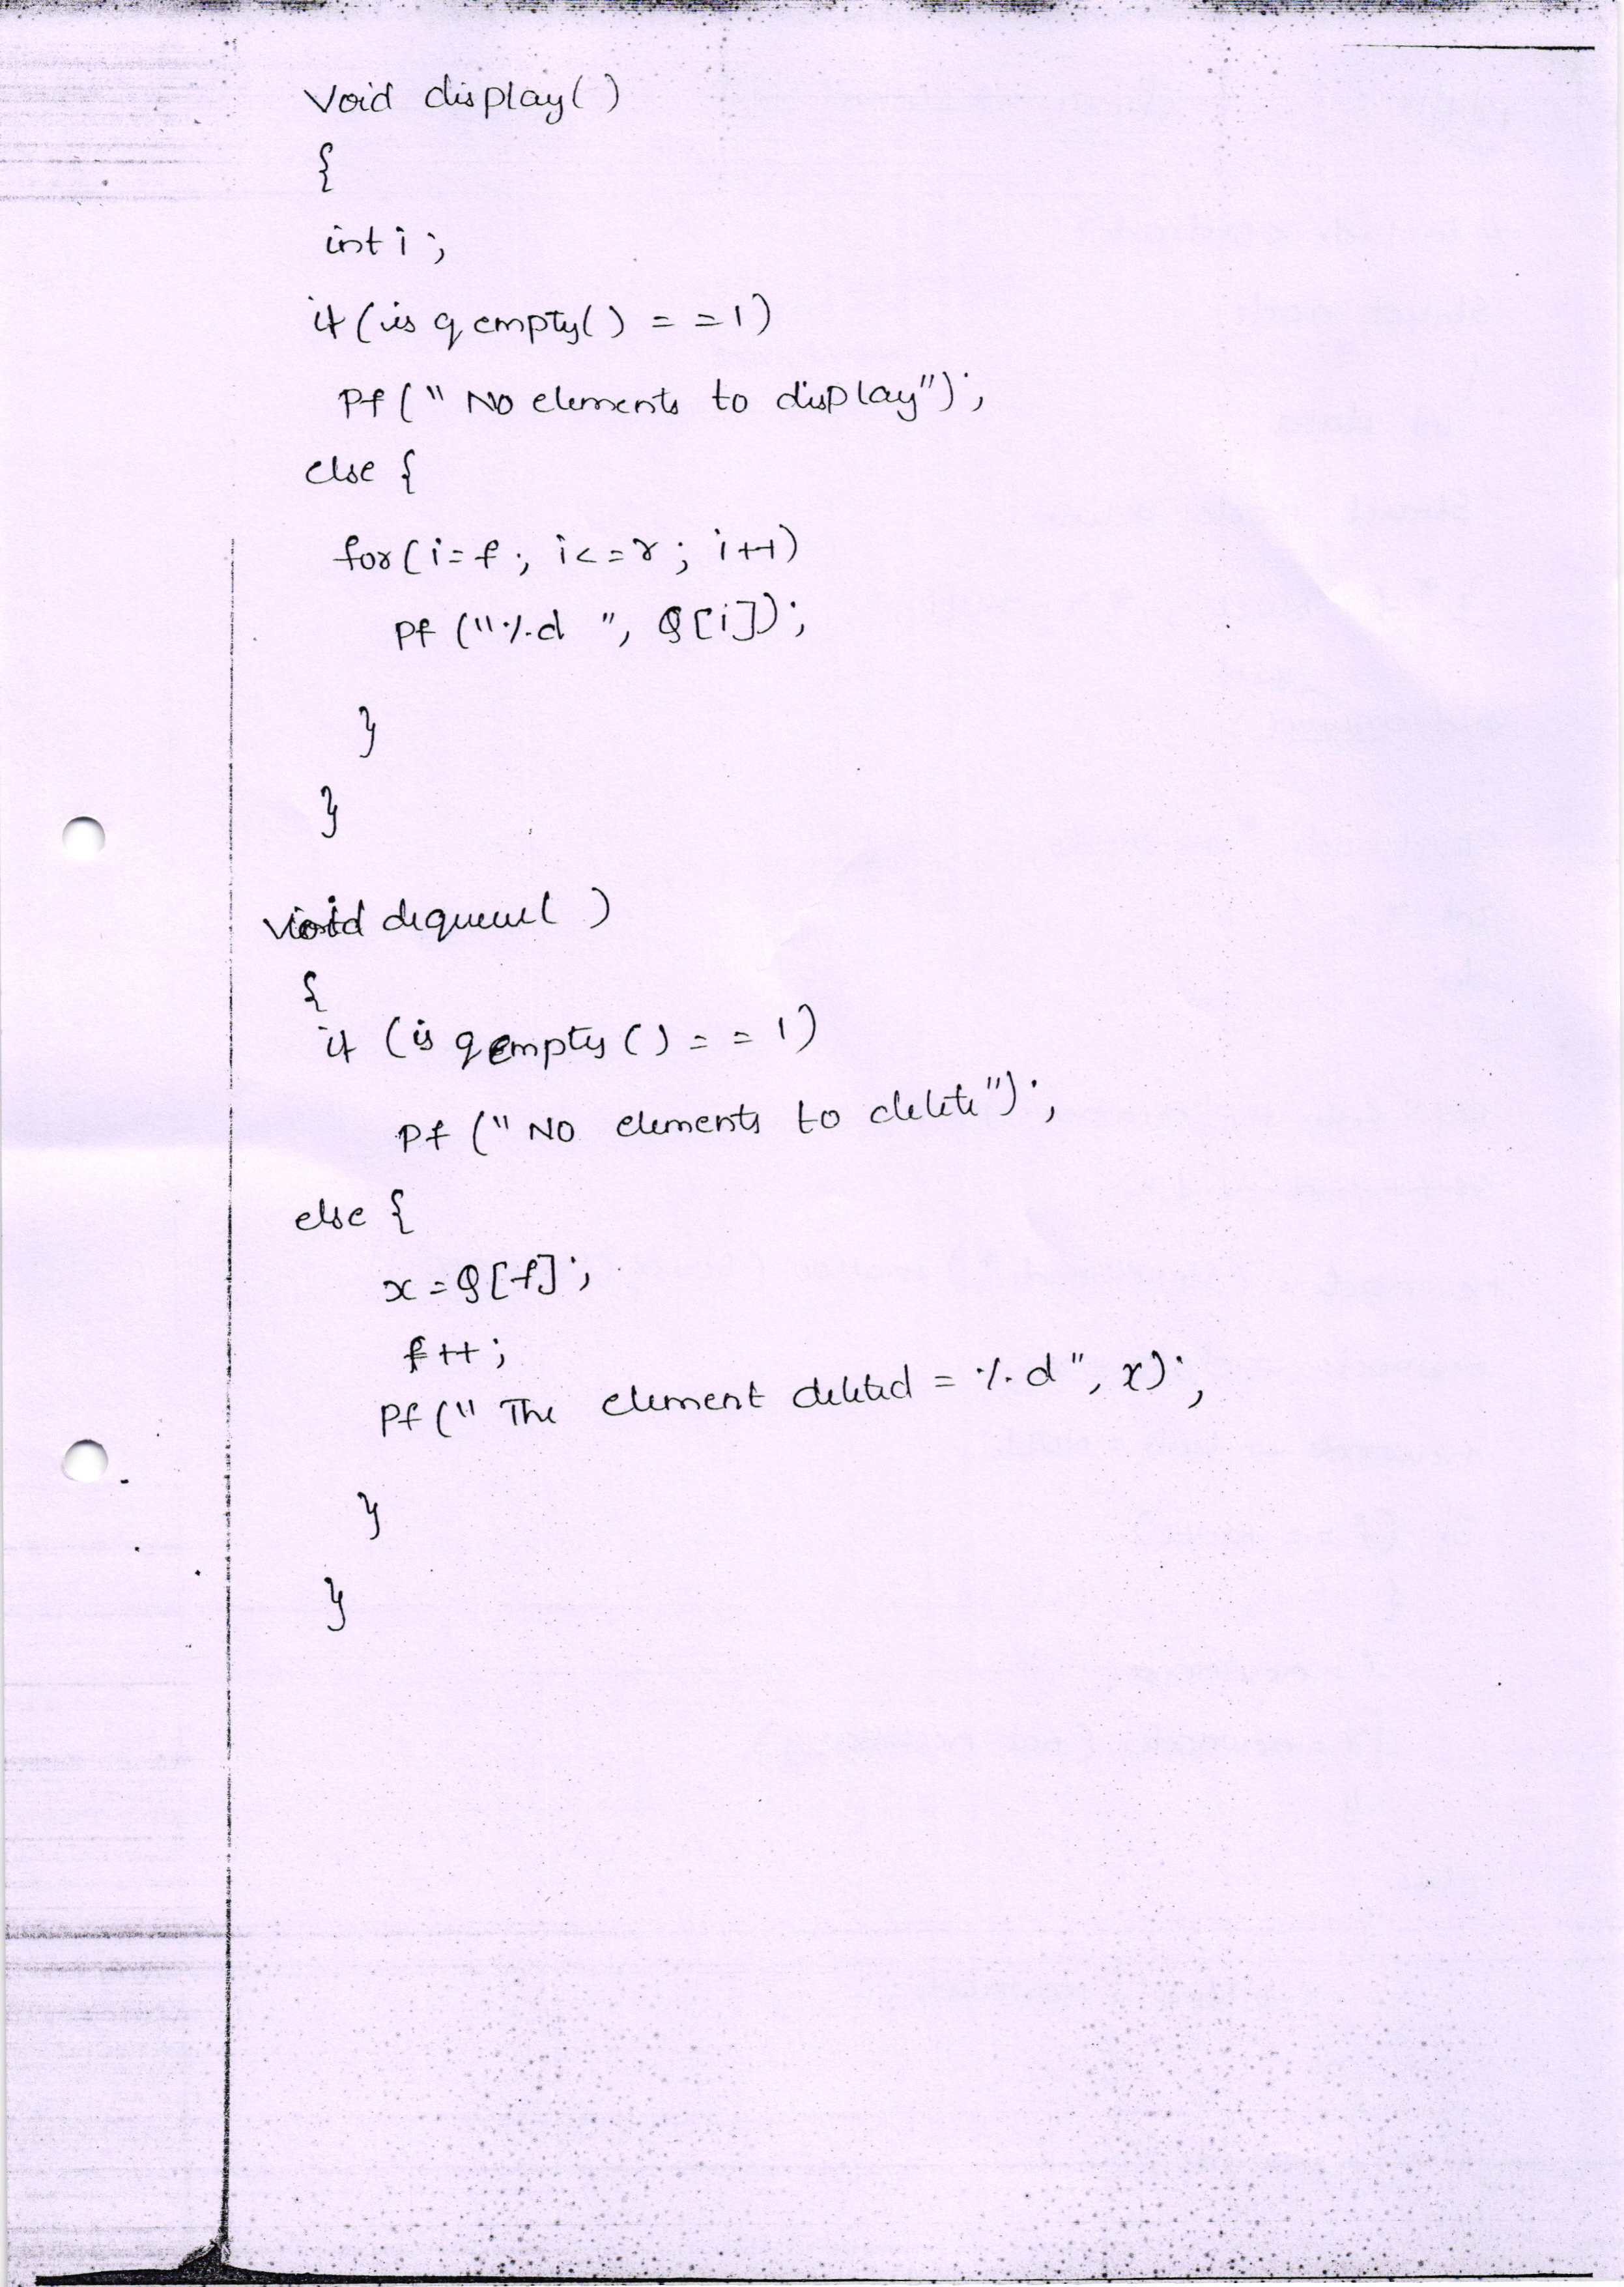 Void display()
{
int i;
if (is q empty() = =1)
Pf (" No elements to display");
else {
for (i=f; i<=r; i++)
Pf ("%d ", Q[i]);
}
}
void dequeue( )
{
if (is q empty () = = 1)
Pf (" NO elements to delete");
else {
x = Q[f];
f++;
Pf (" The element deleted = %d", x);
}
}